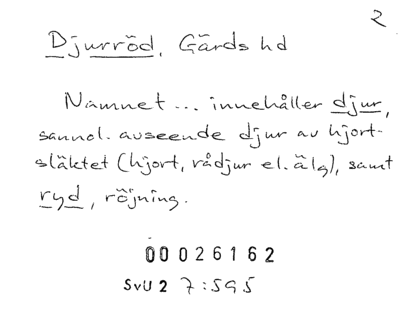 2
Djurröd, Gärds hd
Namnet... innehåller djur,
sannol. avseende djur av hjort-
släktet (hjort, rådjur el. älg), samt
ryd, röjning.
00026162
SVU 2 7:595